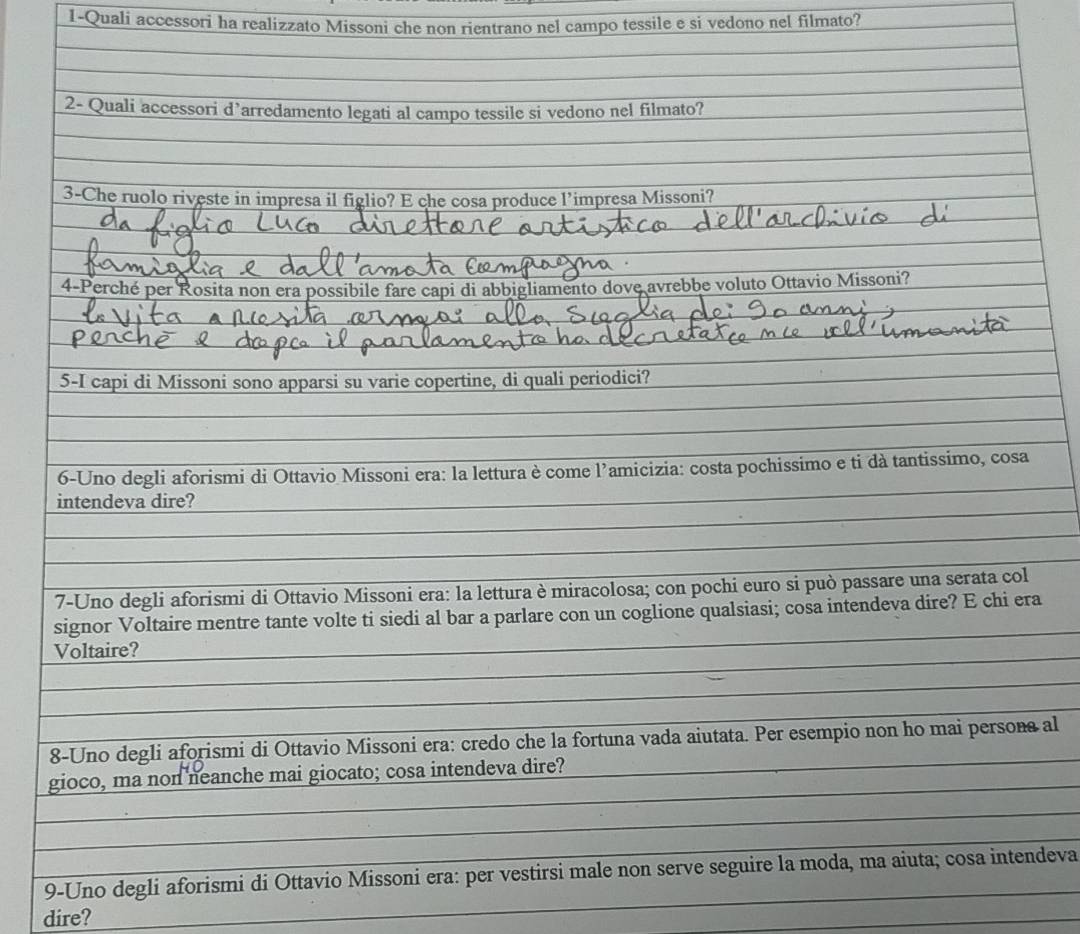 1-Quali accessori ha realizzato Missoni che non rientrano nel campo tessile e si vedono nel filmato?
2- Quali accessori d'arredamento legati al campo tessile si vedono nel filmato?
3-Che ruolo riveste in impresa il figlio? E che cosa produce l'impresa Missoni?
da figlio Luca direttore artistico dell'archivio di
famiglia e dall'amata compagna.
4-Perché per Rosita non era possibile fare capi di abbigliamento dove avrebbe voluto Ottavio Missoni?
la vita a Rosita ormai alla soglia dei 90 anni,
perché e dopo il parlamento ha
5-I capi di Missoni sono apparsi su varie copertine, di quali periodici?
6-Uno degli aforismi di Ottavio Missoni era: la lettura è come l'amicizia: costa pochissimo e ti dà tantissimo, cosa
intendeva dire?
7-Uno degli aforismi di Ottavio Missoni era: la lettura è miracolosa; con pochi euro si può passare una serata col
signor Voltaire mentre tante volte ti siedi al bar a parlare con un coglione qualsiasi; cosa intendeva dire? E chi era
Voltaire?
8-Uno degli aforismi di Ottavio Missoni era: credo che la fortuna vada aiutata. Per esempio non ho mai persona al
gioco, ma non HO neanche mai giocato; cosa intendeva dire?
9-Uno degli aforismi di Ottavio Missoni era: per vestirsi male non serve seguire la moda, ma aiuta; cosa intendeva
dire?